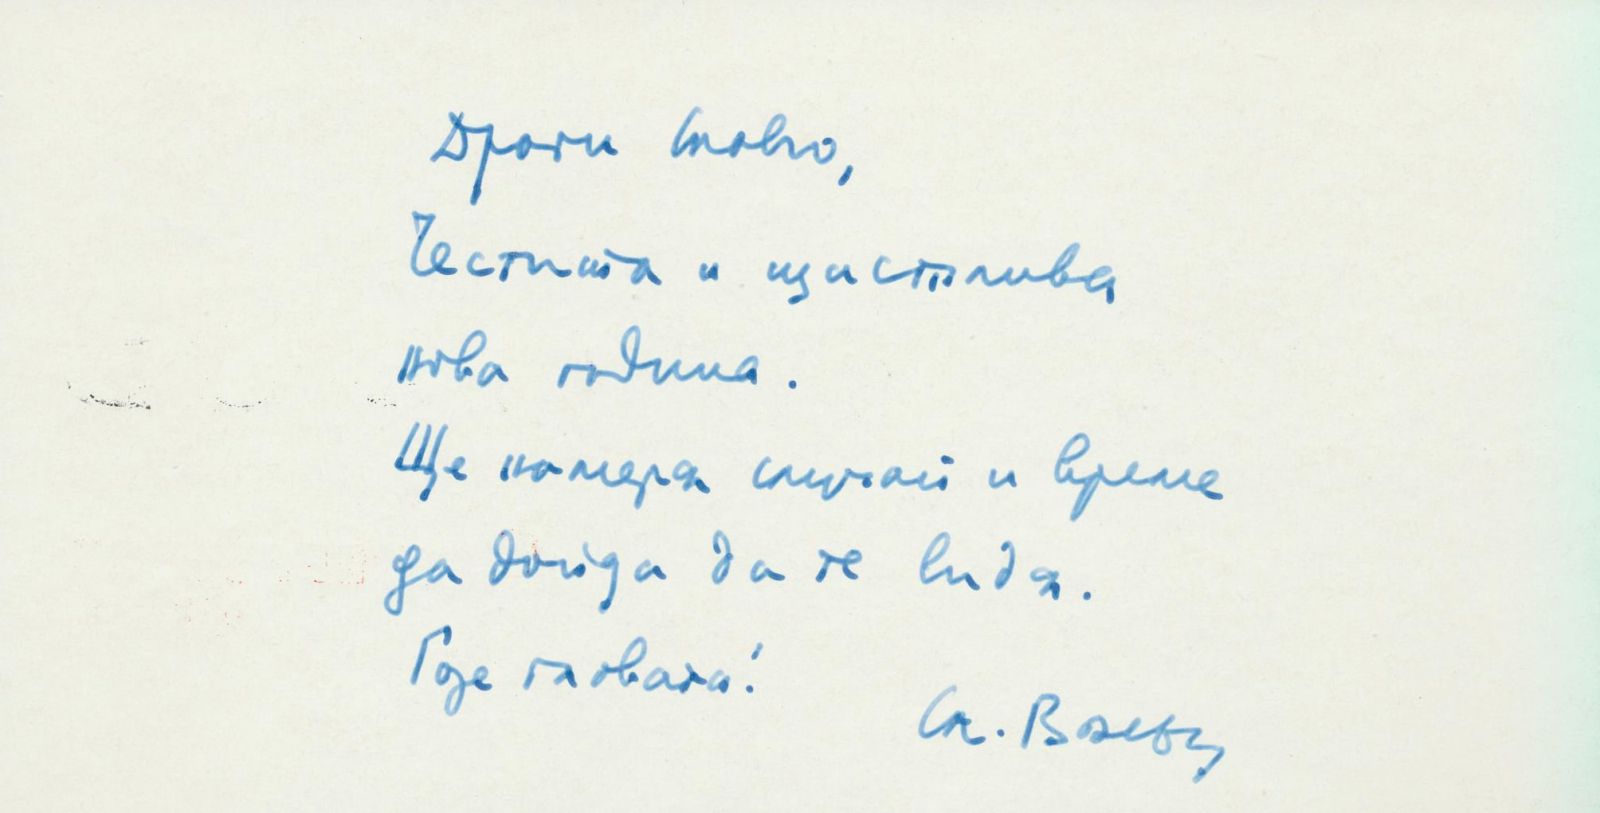 Драги Славчо,
Честита и щастлива
нова година.
Ще намеря случай и време
да дойда да те видя.
Горе главата!
Сл.